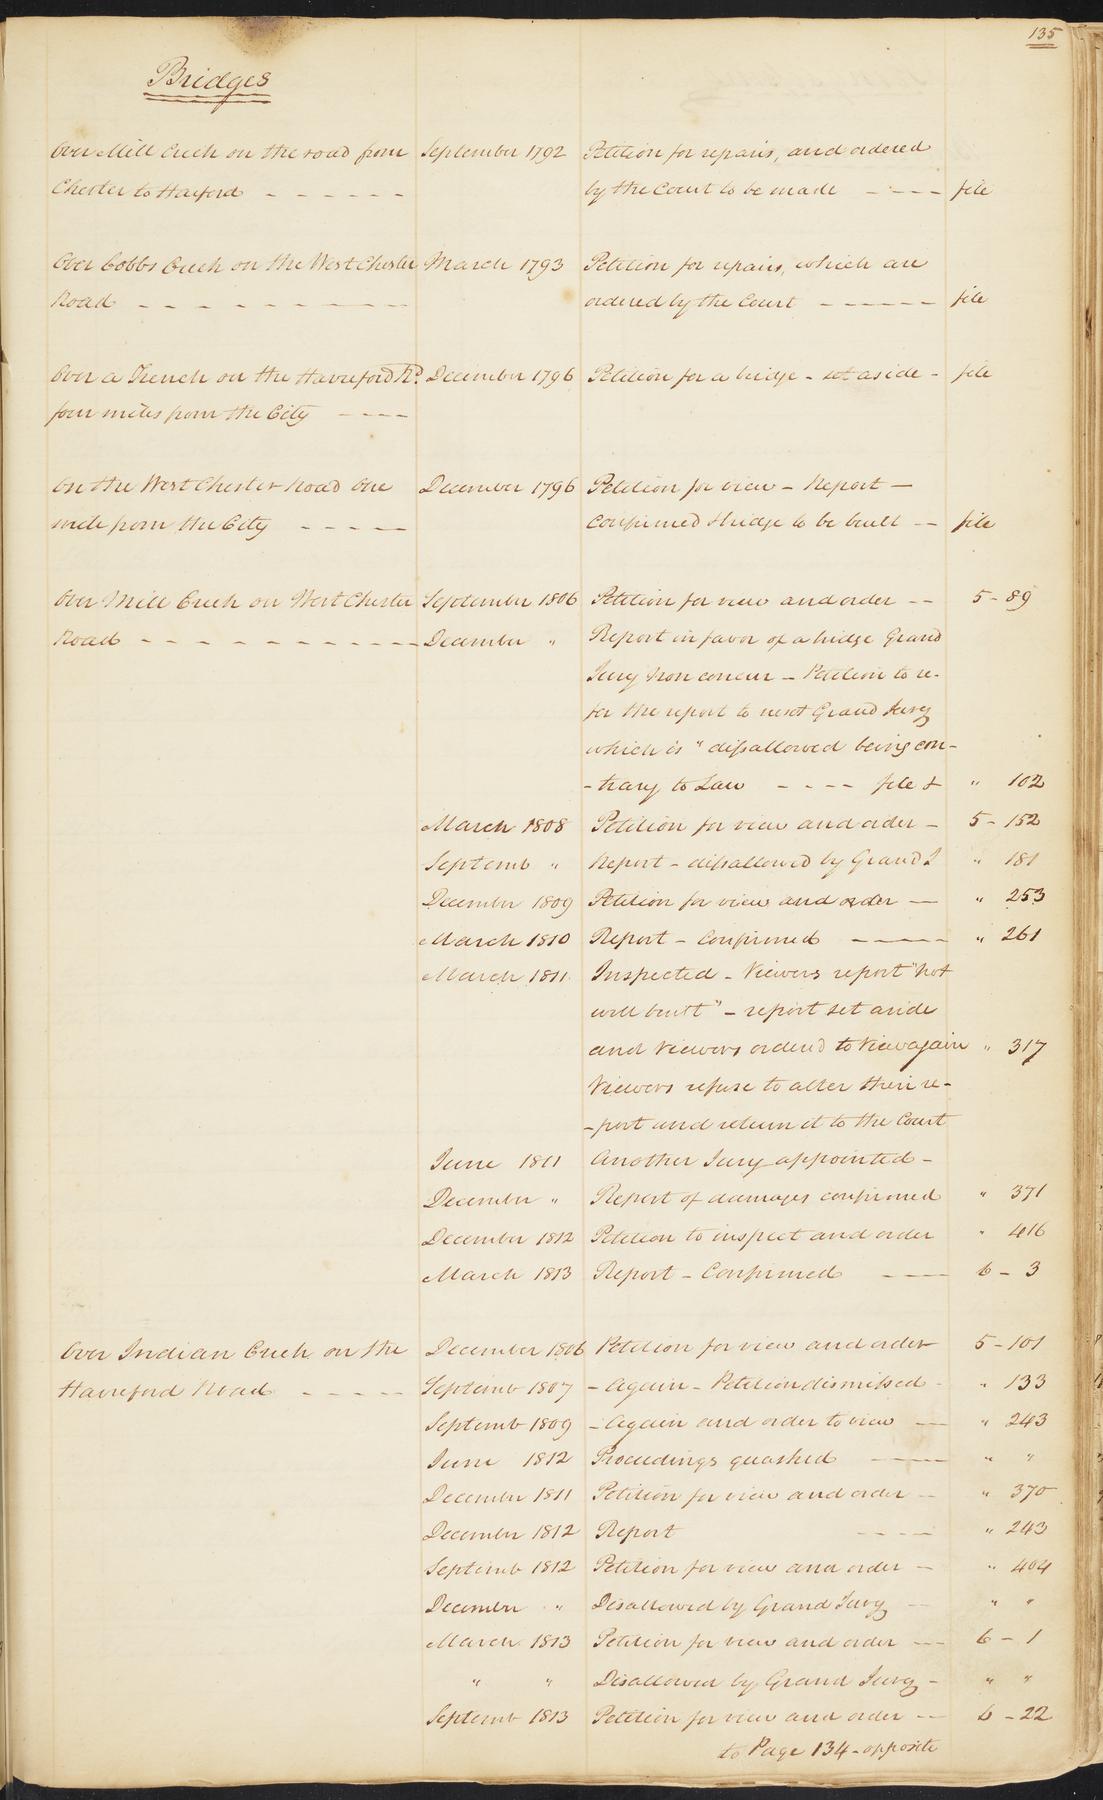 135
Bridges
Over Mill Creek on the road from September 1792 Petition for repairs, and ordered
Chester to Harford - - - - - - by the Court to be made - - - - file
Over Cobbs Creek on the West Chester March 1793 Petition for repairs, which are
Road - - - - - - - - - - ordered by the Court - - - - - - file
Over a Trench on the Haverford Rd. December 1796 Petition for a bridge - set aside - file
four miles from the City - - - -
On the West Chester Road One December 1796 Petition for view - Report -
mile from the City - - - - - Confirmed & bridge to be built - - file
Over Mill Creek on West Chester September 1806 Petition for view and order - - 5 - 89
Road - - - - - - - - - - - December " Report in favor of a bridge Grand
Jury Non concur - Petition to re-
fer the report to next Grand Jury
which is "disallowed being con-
-trary to Law - - - - file & " 102
March 1808 Petition for view and order - 5 - 152
Septemb " Report - disallowed by Grand J " 181
December 1809 Petition for view and order - " 253
March 1810 Report - Confirmed - - - - - " 261
March 1811 Inspected - Viewers report "not
well built" - report set aside
and Viewers ordered to View again " 317
Viewers refuse to alter their re-
-port and return it to the Court
June 1811 Another Jury appointed -
December " Report of damages confirmed " 371
December 1812 Petition to inspect and order " 416
March 1813 Report - Confirmed - - - 6 - 3
Over Indian Creek on the December 1806 Petition for view and order 5 - 101
Haverford Road - - - - - Septemb 1807 - Again - Petition dismissed - " 133
Septemb 1809 - Again and order to view - - " 243
June 1812 Proceedings quashed - - - - " "
December 1811 Petition for view and order - - " 370
December 1812 Report - - - - " 243
Septemb 1812 Petition for view and order - " 404
December " Disallowed by Grand Jury - - " "
March 1813 Petition for view and order - - - 6 - 1
" " Disallowed by Grand Jury - " "
Septemb 1813 Petition for view and order - - 6 - 22
to Page 134 - opposite